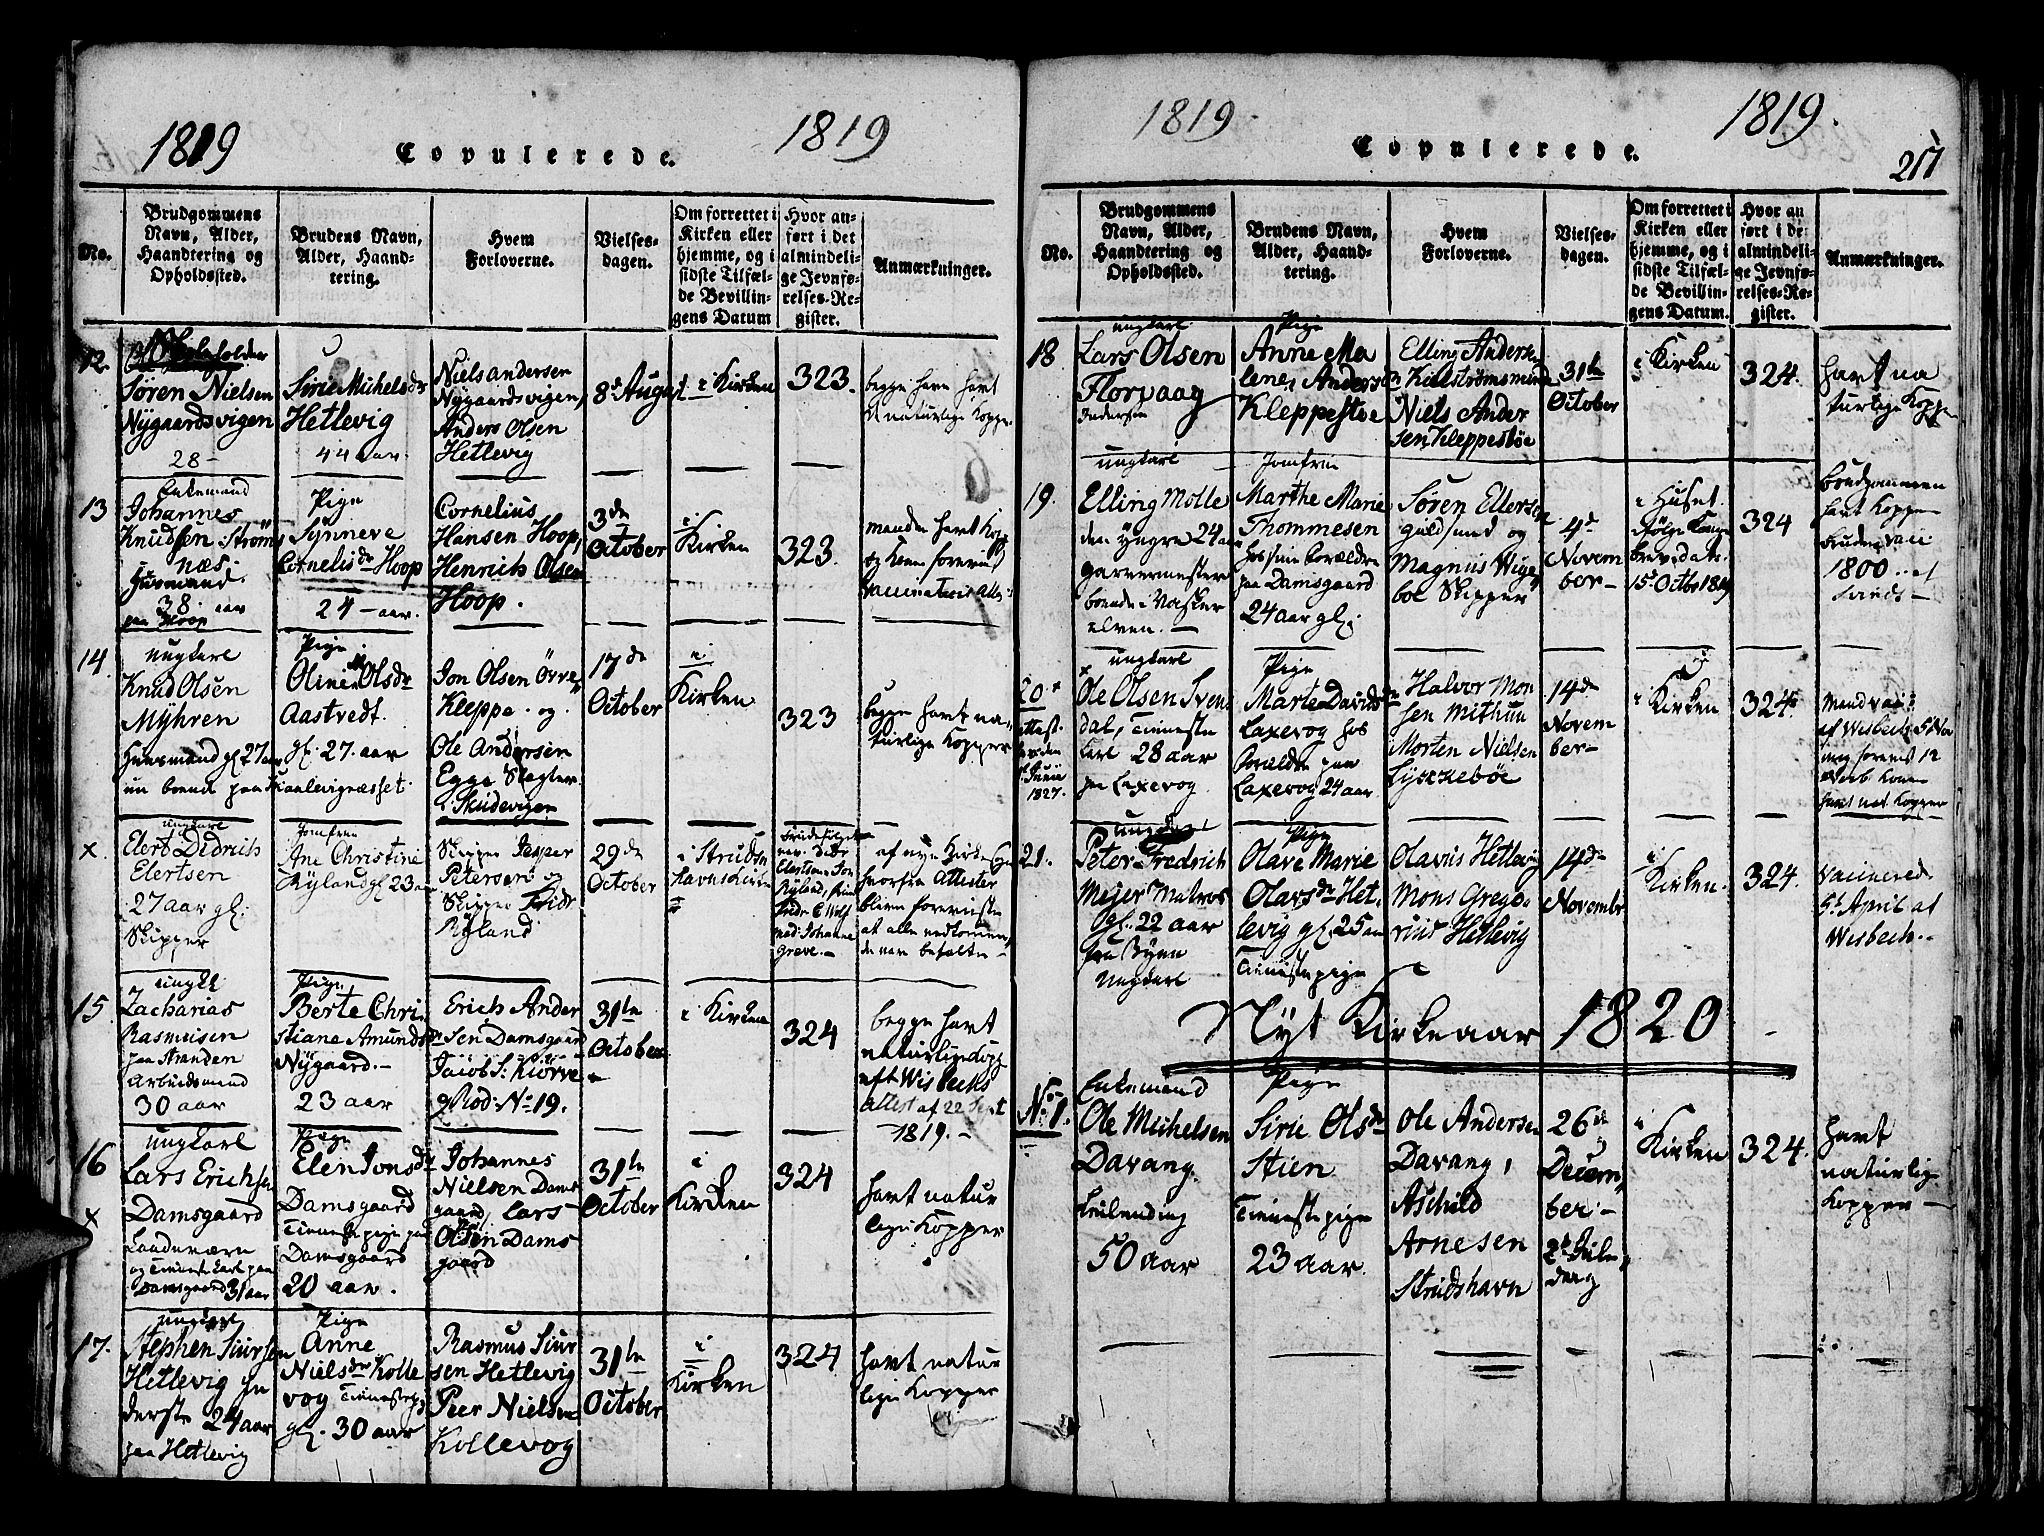 1819
Copulerede.
1819
No.
Brudgommens
Navn, Alder,
Haandtering og
Opholdssted.
Brudens Navn,
Alder, Haand-
tering.
Hvem
Forloverne.
Vielses-
dagen.
Om forrettet i
Kirken eller
hjemme, og i
sidste Tilfæl-
de Bevillin-
gens Datum
Hvor an-
ført i det
almindeli-
ge Jevnfø-
relses-Re-
gister.
Anmærkninger.
12.
Søren Nielsen
Nygaardsvigen
28-
Sirie Michelsdr
Hetlevig
44 aar.
Niels andersen
Nygaardsvigen,
Anders Olsen
Hetlevig
8de August
i Kirken
323.
begge have havt
naturlige Kopper
13
Enkemand
Johannes
Knudsen Ström
næs
Huusmand.
38. aar
paa Hoop
Pige
Synneve
Cornelisdr Hoop
24 - aar.
Cornelius
Hansen Hoop,
Henrich Olsen
Hoop.
3de
October
i
Kirken
323.
manden havt Kopp
og Konen foreviist
Vaccinations Att.
14
ungkarl
Knud Olsen
Myhren
Huusmand gl 27 aar
nu boende paa
Pige
Oline Olsdr
Aastvedt.
gl. 27. aar
Jon Olsen Övre
Kleppe. og
Ole Andersen
Egge Slagter
i Skudevigen
17de
October
i
Kirken
323
begge havt na-
turlige Kopper
x
ungkarl
Elert Didrich
Elertsen
27 aar gl.
Skipper
Jomfrue
Ane Christine
Ryland gl 23 aar
Skipper Jesper
Petersen og
Skipper Fridr
Ryland
29de
October
i Strudsh
havns Kirke
Johanne
Greve.-
af nye Kirke
hvorfra Attester
15
ungkl
Zacharias
Rasmusen
paa Stranden
Arbeidsmand
30 aar
Pige
Berte Chri
stiane Amundsdr
Nygaard.-
23 aar
Erich Ander
sen Damsgaard
Jacob S. Kiörre
g Rod: No 19.
31te
October
i Kirken
324
begge havt
naturlige Kopp
eft Wisbecks
Attest af 22 Sept
1819.-
16
x
ungkarl
Lars Erichsen
Damsgaard
og Tieneste karl paa
Damsgaard 31 aar
Pige
Elen Jonsdr
Damsgaard
Tieneste pige paa
Damsgaard
20 aar.
Johannes
Nielsen Dams
gaard, Lars
Olsen Dams
gaard
31te
October
i
Kirken
324
havt natur
lige Kopper
17.
ungkarl
Stephen Siursen
Hetlevig in
derste 24 aar
paa Hetlevig
Pige
Anne
Nielsdr Kolle
vog Tienestep
gl. 30 aar
Rasmus Siur
sen Hetlevig
Peer Nielsen
Kollevog
31te
October
i
Kirken
324
havt natur
lige Kopper
1819.
Copulerede.
1819.
217
No.
Brudgommens
Navn, Alder,
Haandtering og
Opholdssted.
Brudens Navn,
Alder, Haand-
tering.
Hvem
Forloverne.
Vielses-
dagen.
Om forrettet i
Kirken eller
hjemme, og i
sidste Tilfæl-
de Bevillin-
gens Datum.
Hvor an
ført i de
almindeli-
ge Jevnfø-
relses-Re-
gister.
Anmærkninger.
18
ungkarl
Lars Olsen
Florvaag
Inderste
Pige
Anne Ma
lene Anders
Kleppestøe
Elling Andersen
Kielströmsmunde
Niels Ander
sen, Kleppestöe
31te
October
i Kirken
324.
havt na
turlige Kopper
19.
ungkarl
Elling Molle
den Yngre 24 aar
garvermester
boende i Vasker
elven.-
Jomfrue
Marthe Marie
Thommesen
hos sine Forældre
paa Damsgaard
24 aar gl.
Søren Ellersen
guldsmed og
Magnus Wige
boe Skipper
4de
Novem
ber-
i Huset
ifølge Konge
brev dat.
15 Octbr 1819
324
Brudgommen
havt Kopper
Bruden vacc
1800. af
20
attest
den
Junii
1827.
ungkarl
Ole Olsen Sven
dal, Tieneste
karl 28 aar
paa Laxevog
Pige
Marte Davidsdr
Laxevog hos
Forældre paa
Laxevog 24 aar
Halvor Mon
sen Mithun
Morten Nielsen
Lyxzeböe
14de
Novem
ber-
i Kirken
324.
Mand vacc:
af Wisbech 5 No
havt nat. Kopper
21.
ungkarl
Peter Fredrich
Mejer Matros
gl. 22 aar
fra Byen
Ungkarl
Pige
Olave Marie
Olavsdr Het
levig gl. 25 aar
Tieneste pige
Olavus Hetlevig
Mons Grego
rius Hetlevig
14de
Novembr
i
Kirken.
324.
Vaccinered
5te April af
Wisbech.-
Nyt Kirkeaar 1820
No 1.
Enkemand
Ole Michelsen
Davang.
50 aar
Pige
Sirie Olsdr
Stien
Tieneste pige
23 aar.
Ole Andersen
Davang,
Aschild
Arnesen
Strudshavn
26de
Decem
ber-
2de Jule
dag
i
Kirken
324.
havt
naturlig
Kopper-